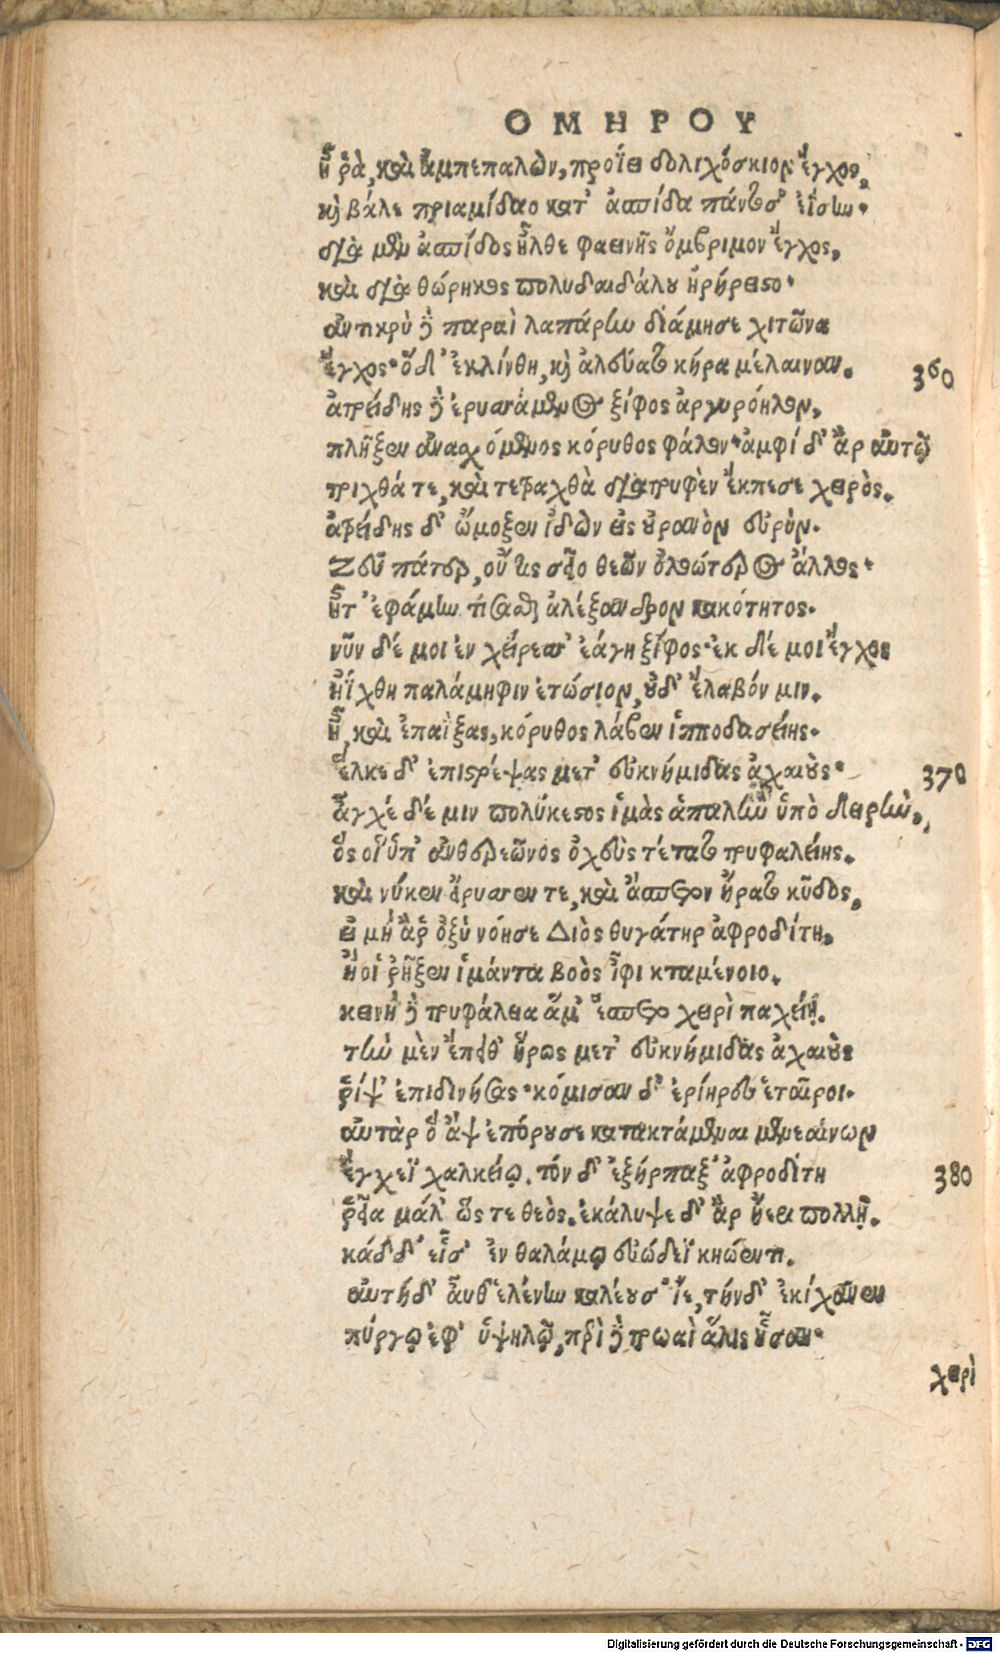 ΟΜΗΡΟΥ
ἦ ῥὰ, καὶ ἀμπεπαλὼν, προΐει δολιχόσκιον ἔγχος,
καὶ βάλε πριαμίδαο κατ' ἀσπίδα πάντοσ' ἐΐσην·
διὰ μὲν ἀσπίδος ἦλθε φαεινῆς ὄμβριμον ἔγχος,
καὶ διὰ θώρηκος πολυδαιδάλου ἠρήρειστο·
ἀντικρὺ δὲ παραὶ λαπάρην διάμησε χιτῶνα
ἔγχος· ὅδ' ἐκλίνθη, καὶ ἀλεύατο κῆρα μέλαιναν. 360
ἀτρείδης δὲ ἐρυσσάμενος ξίφος ἀργυρόηλον,
πλῆξεν ἀνασχόμενος κόρυθος φάλον· ἀμφὶ δ' ἂρ αὐτῷ
τριχθά τε, καὶ τετραχθὰ διατρυφὲν ἔκπεσε χειρὸς.
ἀτρείδης δ' ᾤμοξεν ἰδὼν εἰς οὐρανὸν εὐρὺν.
Ζεῦ πάτερ, οὔτις σεῖο θεῶν ὀλοώτερος ἄλλος·
ἦτ' ἐφάμην τίσασθαι ἀλέξανδρον κακότητος.
νῦν δέ μοι ἐν χείρεσσ' ἐάγη ξίφος· ἐκ δέ μοι ἔγχος
ἠΐχθη παλάμηφιν ἐτώσιον, οὐδ' ἔλαβόν μιν.
ἦ, καὶ ἐπαΐξας, κόρυθος λάβεν ἱπποδασείης·
εἷλκε δ' ἐπιστρέψας μετ' εὐκνήμιδας ἀχαιούς· 370
ἄγχε δέ μιν πολύκεστος ἱμὰς ἁπαλὴν ὑπὸ δειρὴν,
ὅς οἱ ὑπ' ἀνθερεῶνος ὀχεὺς τέτατο τρυφαλείης.
καὶ νύκεν εἴρυσσέν τε, καὶ ἄσπετον ἤρατο κῦδος,
εἰ μὴ ἂρ ὀξὺ νόησε Διὸς θυγάτηρ ἀφροδίτη,
ἥ οἱ ῥῆξεν ἱμάντα βοὸς ἶφι κταμένοιο.
κεινὴ δὲ τρυφάλεια ἅμ' ἕσπετο χειρὶ παχείῃ.
τὴν μὲν ἔπειθ' ἥρως μετ' εὐκνήμιδας ἀχαιοὺς
ῥίψ' ἐπιδινήσας· κόμισαν δ' ἐρίηρες ἑταῖροι.
αὐτὰρ ὃ ἂψ ἐπόρουσε κατακτάμεναι μενεαίνων
ἔγχεϊ χαλκείῳ. τόν δ' ἐξήρπαξ' ἀφροδίτη 380
ῥεῖα μάλ' ὥς τε θεὸς. ἐκάλυψε δ' ἂρ ἠέρι πολλῇ.
κάδδ' εἷσ' ἐν θαλάμῳ εὐώδεϊ κηώεντι.
αὐτὴ δ' αὖθ' ἑλένην καλέουσ' ἴε, τήνδ' ἐκίχανεν
πύργῳ ἐφ' ὑψηλῷ, περὶ δὲ τρωαὶ ἅλις ἦσαν·
χειρὶ
Digitalisierung gefördert durch die Deutsche Forschungsgemeinschaft - DFG